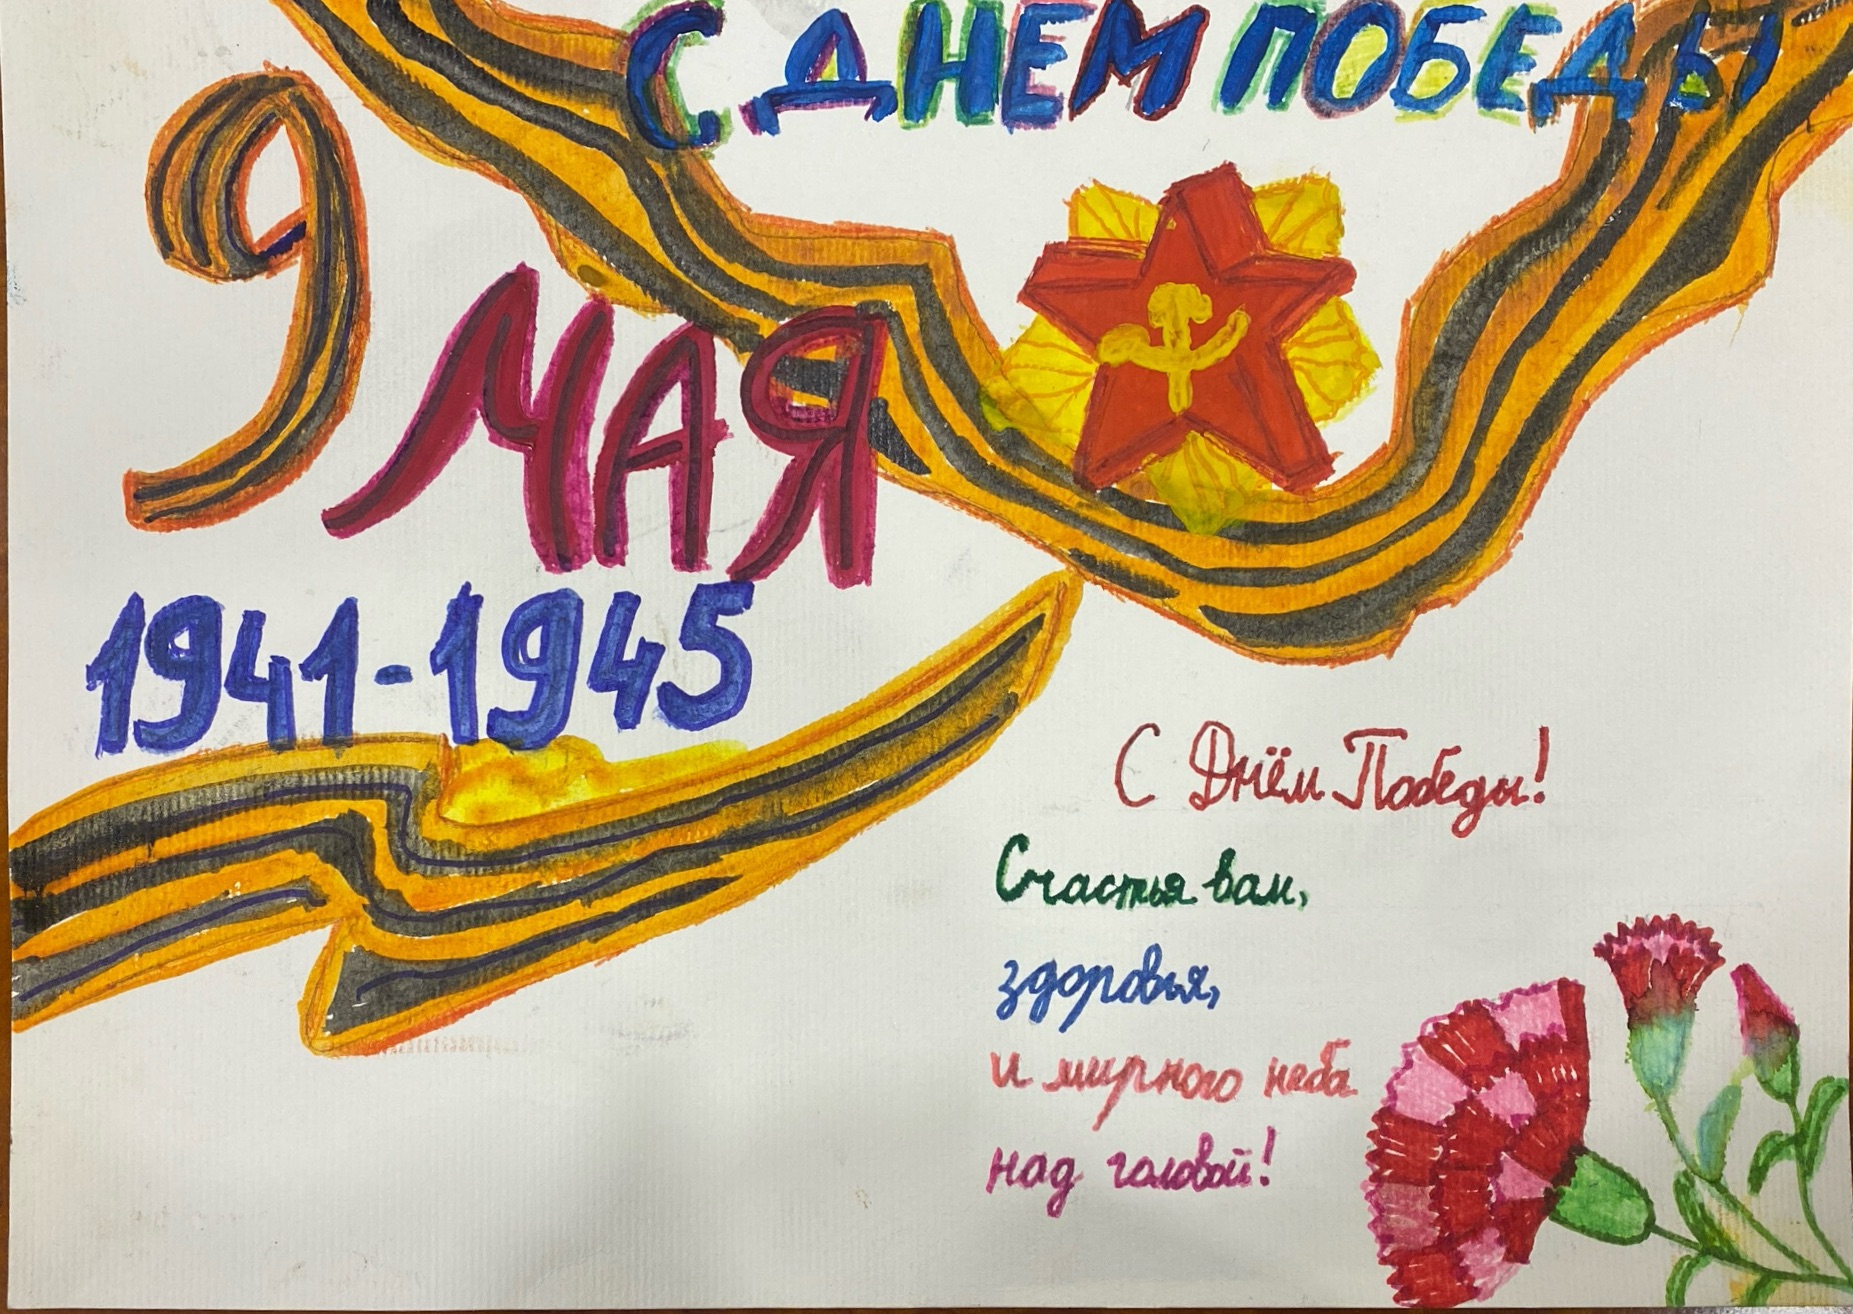 С ДНЕМ ПОБЕДЫ
9 МАЯ
1941-1945
С Днём Победы!
Счастья вам,
здоровья,
и мирного неба
над головой!